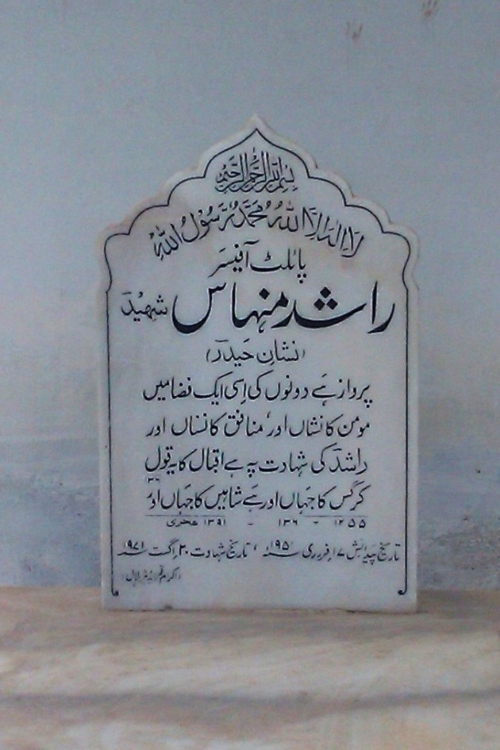 بسم اللہ الرحمن الرحیم
لا الہ الا اللہ محمد رسول اللہ
پائلٹ آفیسر
راشد منہاس شہید
(نشان حیدر)
پرواز ہے دونوں کی اسی ایک فضا میں
مومن کا نشاں اور، منافق کا نشاں اور
راشد کی شہادت پہ ہے اقبال کا یہ قول
۳۶
کرگس کا جہاں اور ہے شاہیں کا جہاں اور
۱۲۵۵ - ۱۳۶ - ۱۳۹۱ ھجری
تاریخ پیدائش ۱۷ فروری ۱۹۵۱ تاریخ شہادت ۲۰ اگست ۱۹۷۱